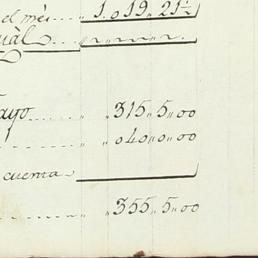 el mes.... 1.019,,21½
ual.... ,,
ayo...... ,, 315,,5,,00
........ ,, ,,040,,0,,00
cuenta
........ ,, ,, 355,,5,,00